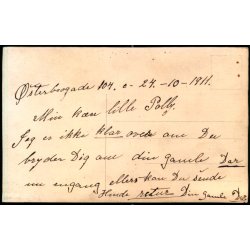 Østerbrogade 104. d. 27.-10-1911.
Min kære lille Polly.
Jeg er ikke klar over om Du
bryder Dig om din gamle Far
nu engang ellers kan Du sende
Hende retur Din Gamle Far